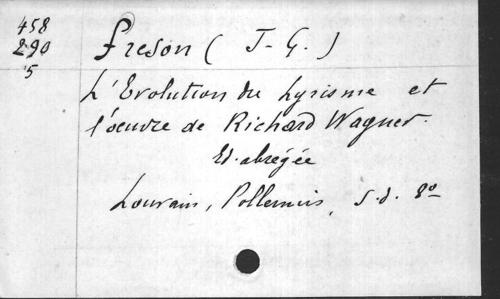 458
290
5
Freson (J-G.)
L'Evolution du Lyrisme et
l'oeuvre de Richard Wagner.
Ed. abrégée
Louvain, Polleunis, s.d. 8º